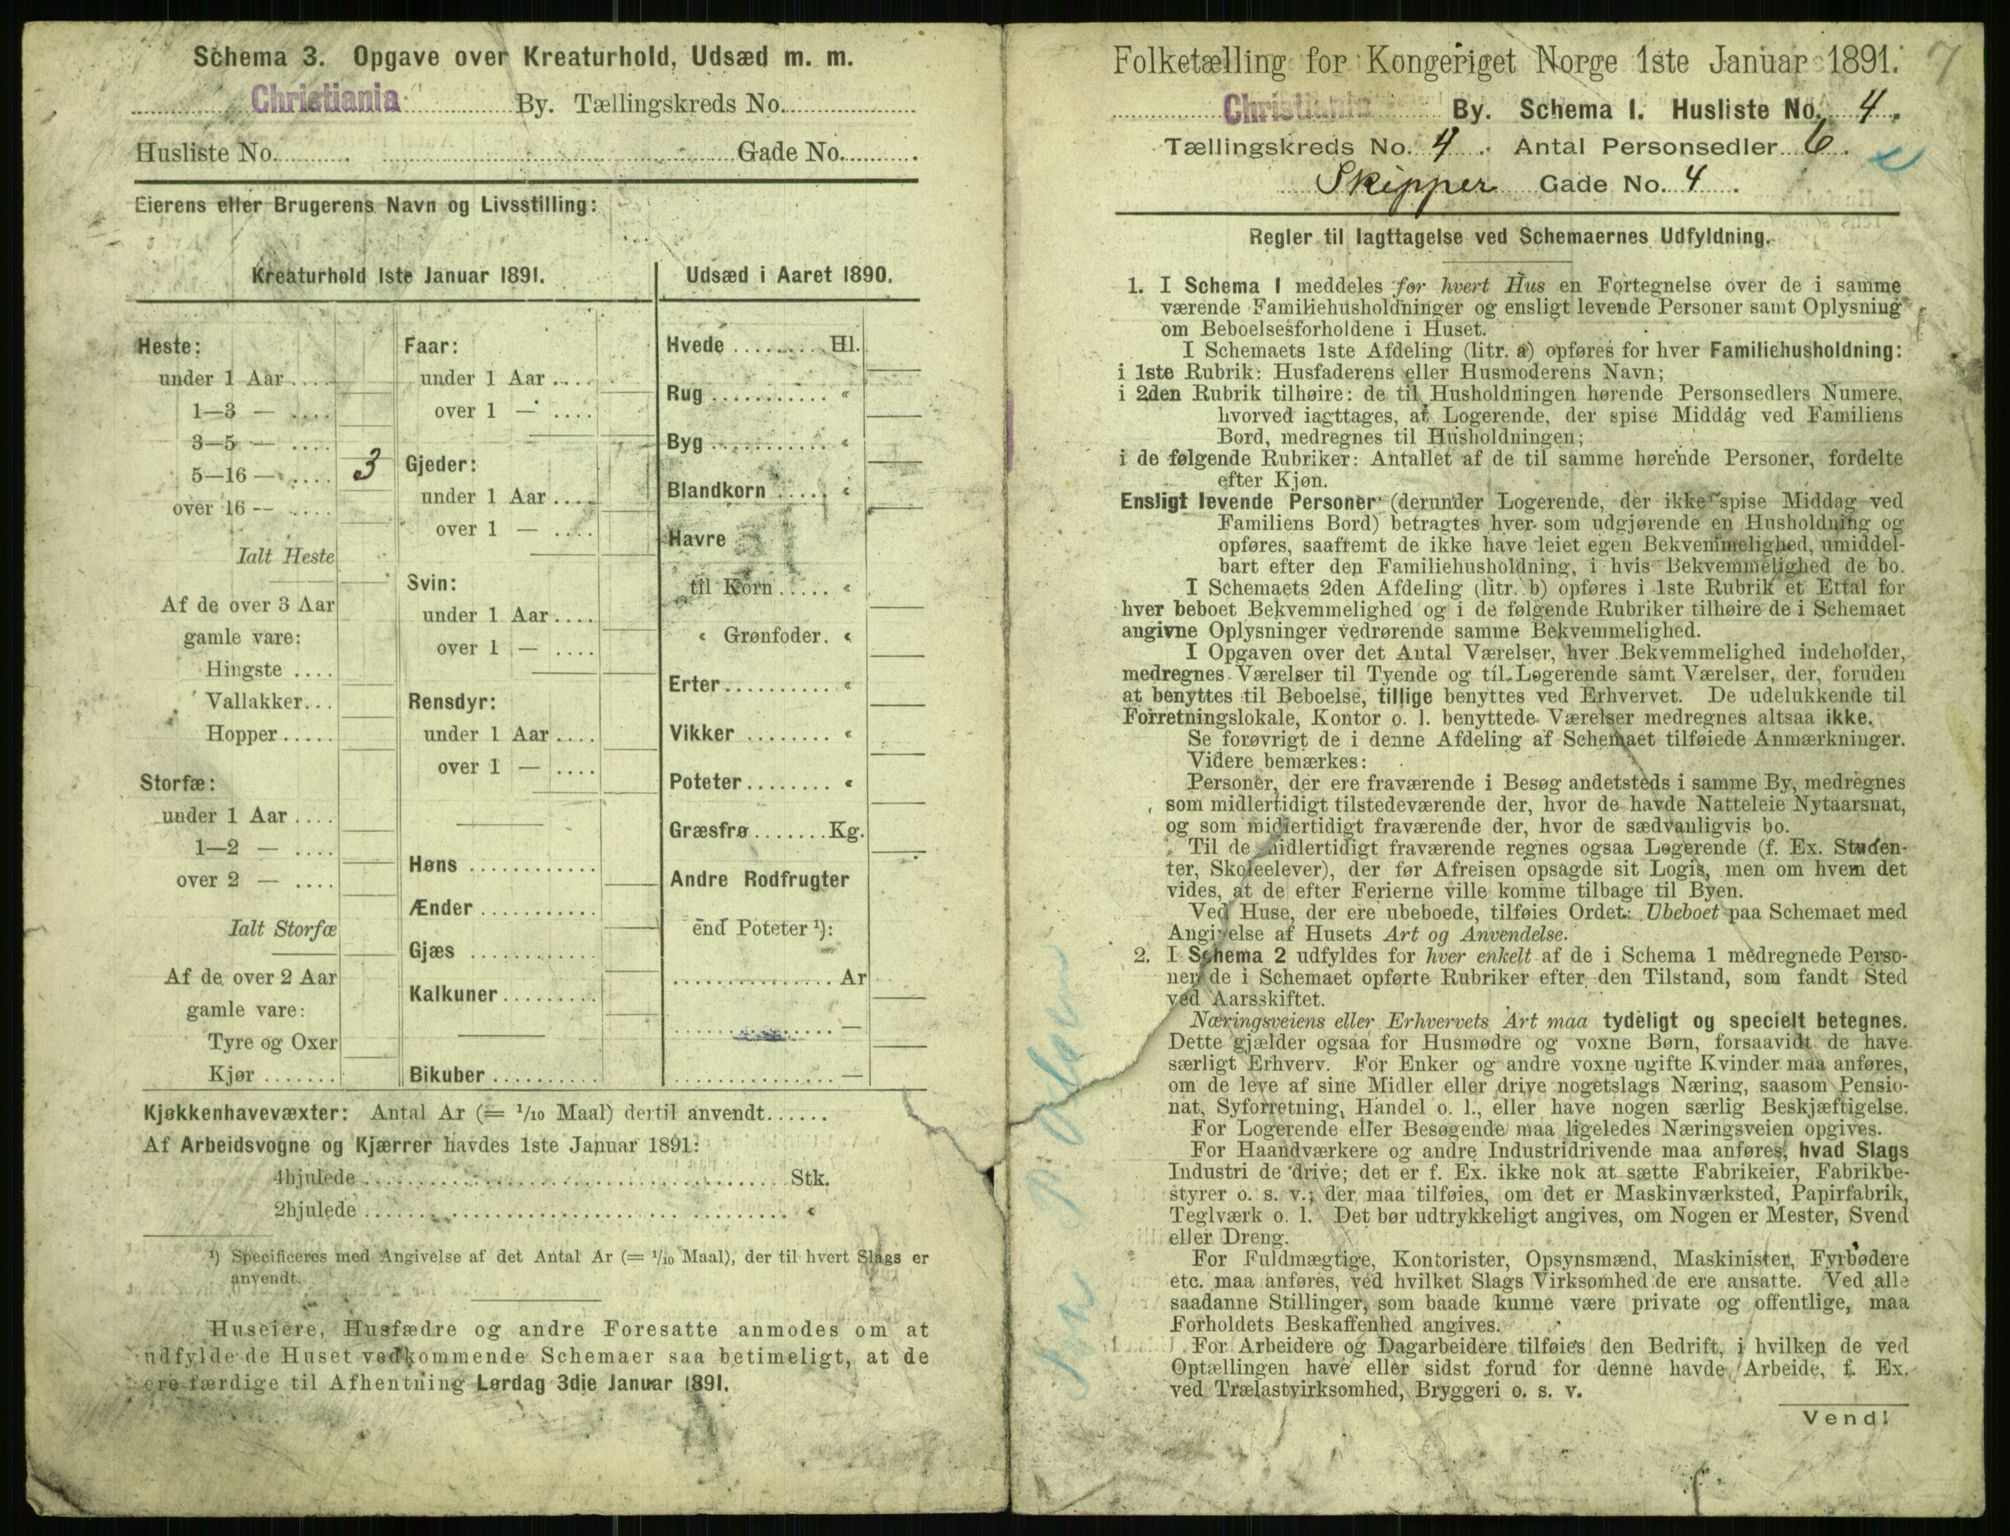 Schema 3. Opgave over Kreaturhold, Udsæd m. m.
Christiania By. Tællingskreds No.
Husliste No. Gade No.
Eierens eller Brugerens Navn og Livsstilling:
Kreaturhold 1ste Januar 1891.
Heste:
under 1 Aar
1—3 —
3—5 —
5—16 — 3
over 16 —
Ialt Heste
Af de over 3 Aar
gamle vare:
Hingste
Vallakker
Hopper
Storfæ:
under 1 Aar
1—2 —
over 2 —
Ialt Storfæ
Af de over 2 Aar
gamle vare:
Tyre og Oxer
Kjør
Faar:
under 1 Aar
over 1 —
Gjeder:
under 1 Aar
over 1 —
Svin:
under 1 Aar
over 1 —
Rensdyr:
under 1 Aar
over 1 —
Høns
Ænder
Gjæs
Kalkuner
Bikuber
Udsæd i Aaret 1890.
Hvede Hl.
Rug "
Byg "
Blandkorn "
Havre
til Korn "
" Grønfoder. "
Erter "
Vikker "
Poteter "
Græsfrø Kg.
Andre Rodfrugter
end Poteter ¹):
Ar
—
—
Kjøkkenhavevæxter: Antal Ar (= 1/10 Maal) dertil anvendt
Af Arbeidsvogne og Kjærrer havdes 1ste Januar 1891:
4hjulede Stk.
2hjulede "
¹) Specificeres med Angivelse af det Antal Ar (= 1/10 Maal), der til hvert Slags er
anvendt.
Huseiere, Husfædre og andre Foresatte anmodes om at
udfylde de Huset vedkommende Schemaer saa betimeligt, at de
ere færdige til Afhentning Lørdag 3die Januar 1891.
Folketælling for Kongeriget Norge 1ste Januar 1891. 7
Christiania By. Schema 1. Husliste No. 4.
Tællingskreds No. 4. Antal Personsedler 6.
Skipper Gade No. 4.
Regler til Iagttagelse ved Schemaernes Udfyldning.
1. I Schema 1 meddeles for hvert Hus en Fortegnelse over de i samme
værende Familiehusholdninger og ensligt levende Personer samt Oplysning
om Beboelsesforholdene i Huset.
I Schemaets 1ste Afdeling (litr. a) opføres for hver Familiehusholdning:
i 1ste Rubrik: Husfaderens eller Husmoderens Navn;
i 2den Rubrik tilhøire: de til Husholdningen hørende Personsedlers Numere,
hvorved iagttages, at Logerende, der spise Middag ved Familiens
Bord, medregnes til Husholdningen;
i de følgende Rubriker: Antallet af de til samme hørende Personer, fordelte
efter Kjøn.
Ensligt levende Personer (derunder Logerende, der ikke spise Middag ved
Familiens Bord) betragtes hver som udgjørende en Husholdning og
opføres, saafremt de ikke have leiet egen Bekvemmelighed, umiddel-
bart efter den Familiehusholdning, i hvis Bekvemmelighed de bo.
I Schemaets 2den Afdeling (litr. b) opføres i 1ste Rubrik et Ettal for
hver beboet Bekvemmelighed og i de følgende Rubriker tilhøire de i Schemaet
angivne Oplysninger vedrørende samme Bekvemmelighed.
I Opgaven over det Antal Værelser, hver Bekvemmelighed indeholder,
medregnes Værelser til Tyende og til Logerende samt Værelser, der, foruden
at benyttes til Beboelse, tillige benyttes ved Erhvervet. De udelukkende til
Forretningslokale, Kontor o. l. benyttede Værelser medregnes altsaa ikke.
Se forøvrigt de i denne Afdeling af Schemaet tilføiede Anmærkninger.
Videre bemærkes:
Personer, der ere fraværende i Besøg andetsteds i samme By, medregnes
som midlertidigt tilstedeværende der, hvor de havde Natteleie Nytaarsnat,
og som midlertidigt fraværende der, hvor de sædvanligvis bo.
Til de midlertidigt fraværende regnes ogsaa Logerende (f. Ex. Studen-
ter, Skoleelever), der før Afreisen opsagde sit Logis, men om hvem det
vides, at de efter Ferierne ville komme tilbage til Byen.
Ved Huse, der ere ubeboede, tilføies Ordet: Ubeboet paa Schemaet med
Angivelse af Husets Art og Anvendelse.
2. I Schema 2 udfyldes for hver enkelt af de i Schema 1 medregnede Perso-
ner de i Schemaet opførte Rubriker efter den Tilstand, som fandt Sted
ved Aarsskiftet.
Næringsveiens eller Erhvervets Art maa tydeligt og specielt betegnes.
Dette gjælder ogsaa for Husmødre og voxne Børn, forsaavidt de have
særligt Erhverv. For Enker og andre voxne ugifte Kvinder maa anføres,
om de leve af sine Midler eller drive nogetslags Næring, saasom Pensio-
nat, Syforretning, Handel o. l., eller have nogen særlig Beskjæftigelse.
For Logerende eller Besøgende maa ligeledes Næringsveien opgives.
For Haandværkere og andre Industridrivende maa anføres, hvad Slags
Industri de drive; det er f. Ex. ikke nok at sætte Fabrikeier, Fabrikbe-
styrer o. s. v.; der maa tilføies, om det er Maskinværksted, Papirfabrik,
Teglværk o. l. Det bør udtrykkeligt angives, om Nogen er Mester, Svend
eller Dreng.
For Fuldmægtige, Kontorister, Opsynsmænd, Maskinister, Fyrbødere
etc. maa anføres, ved hvilket Slags Virksomhed de ere ansatte. Ved alle
saadanne Stillinger, som baade kunne være private og offentlige, maa
Forholdets Beskaffenhed angives.
For Arbeidere og Dagarbeidere tilføies den Bedrift, i hvilken de ved
Optællingen have eller sidst forud for denne havde Arbeide, f. Ex.
ved Trælastvirksomhed, Bryggeri o. s. v.
Vend!
P. Olsen